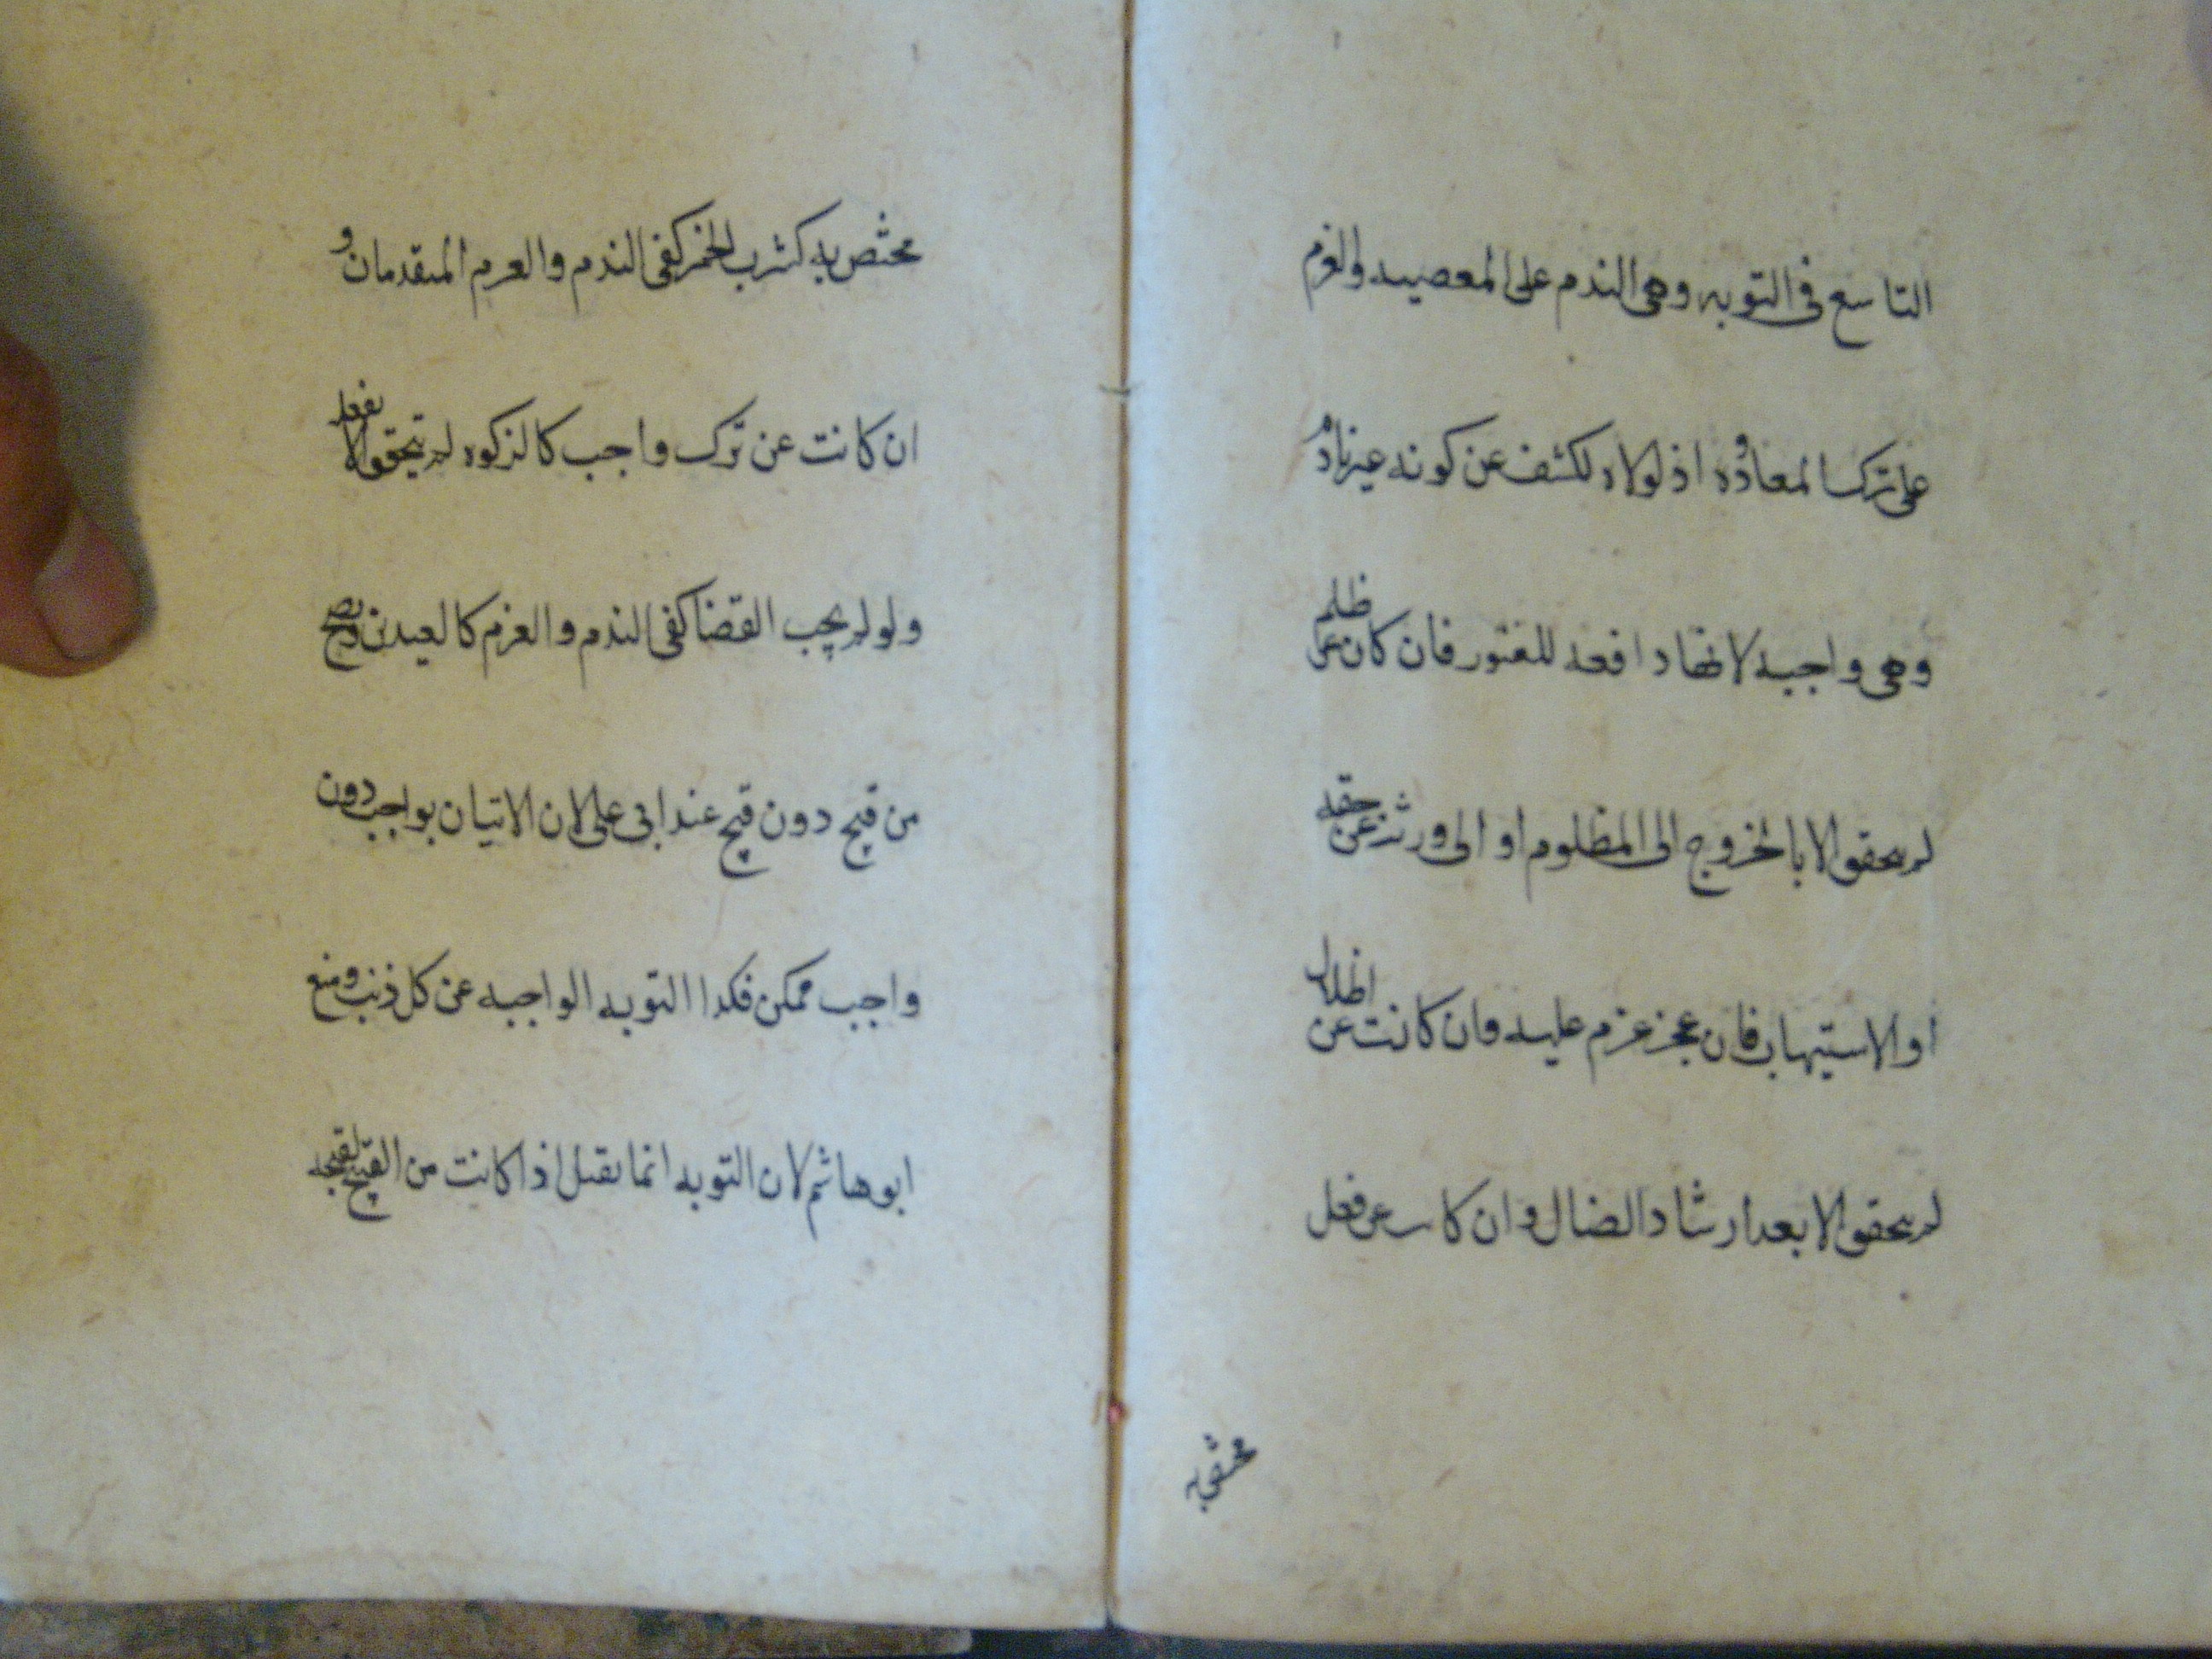 التاسع في التوبه وهي الندم على المعصيه والعزم
على ترك المعاوده اذ لولاه لكشف عن كونه غير نادم
وهي واجبه لانها دافعه للضرر فان كان عن ظلم
لم يتحقق الا بالخروج الى المظلوم او الى ورثته عن حقه
او الاستيهاب فان عجز عزم عليه وان كانت عن اضلال
لم يتحقق الا بعد ارشاد الضال وان كانت عن فعل
مختص به
مختص به كشرب الخمر كفى الندم والعزم المتقدمان و
ان كانت عن ترك واجب كالزكوه لم يتحقق الا بفعله
ولو لم يجب القضا كفى الندم والعزم كالعيدين ويصح
من قبيح دون قبيح عند ابي على لان الاتيان بواجب دون
واجب ممكن فكذا التوبه الواجبه عن كل ذنب ومنع
ابو هاشم لان التوبه انما يقبل اذا كانت من القبيح لقبحه